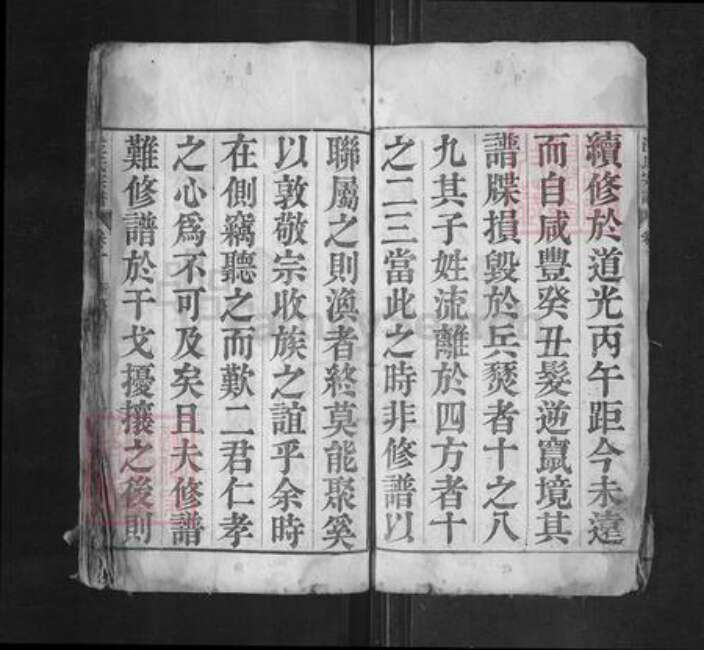 續修於道光丙午距今未遠
而自咸豐癸丑髮逆竄境其
譜牒損毀於兵燹者十之八
九其子姓流離於四方者十
之二三當此之時非修譜以
聯屬之則渙者終莫能聚奚
以敦敬宗收族之誼乎余時
在側竊聽之而歎二君仁孝
之心爲不可及矣且夫修譜
難修譜於干戈擾攘之後則